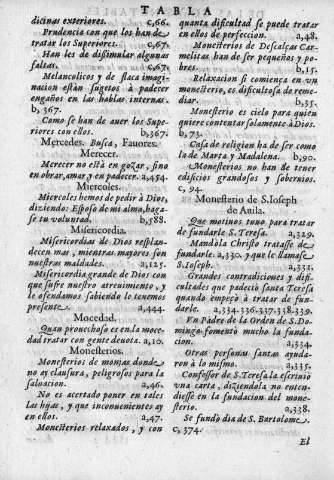 TABLA
dicinas exteriores. c,66.
Prudencia con que los han de
tratar los Superiores. c,67.
Han les de dissimular algunas
faltas. c,67.
Melancolicos y de flaca imagi-
nacion estàn sugetos à padecer
engaños en las hablas internas.
b, 367.
Como se han de auer los Supe-
riores con ellos. b,367.
Mercedes. Busca, Fauores.
Merecer.
Merecer no està en gozar, sino
en obrar, amar y en padecer. a,454.
Miercoles.
Miercoles hemos de pedir à Dios,
diziendo: Esposo de mi alma, haga-
se tu voluntad. b,588.
Misericordia.
Misericordias de Dios resplan-
decen mas, mientras mayores son
nuestras maldades. a,125.
Misericordia grande de Dios: con
que sufre nuestro atreuimiento, y
le ofendamos sabiendo le tenemos
presente. a,444.
Mocedad.
Quan prouechoso es en la moce-
dad tratar con gente deuota. a,10.
Monesterios.
Monesterios de monjas donde
no ay clausura, peligrosos para la
saluacion. a,46.
No es acertado poner en tales
las hijas, y que inconuenientes ay
en ellos. a,47.
Monesterios relaxados, y con
quanta dificultad se puede tratar
en ellos de perfeccion. a,48.
Monesterios de Descalças Car-
melitas han de ser pequeños y po-
bres. b,15.
Relaxacion si comiença en vn
monesterio, es dificultosa de reme-
diar. b,35.
Monesterio es cielo para quien
quiere contentar solamente à Dios.
b, 73.
Casa de religion ha de ser como
la de Marta y Madalena. b,90.
Monesterios no han de tener
edificios grandosos y soberuios.
c, 94.
Monesterio de S. Ioseph
de Auila.
Que motiuos tuuo para tratar
de fundarle S. Teresa. a,329.
Mandòla Christo tratasse de
fundarle. a,330. y que le llamasse
S. Ioseph. a,331.
Grandes contradiciones y difi-
cultades que padeciò santa Teresa
quando empeçò à tratar de fun-
darle. a,334.336.337.338.339.
Vn Padre de la Orden de S. Do-
mingo fomentò mucho la funda-
cion. a,334.
Otras personas santas ayuda-
ron à lo mismo. a,335.
Confessor de S. Teresa la escriuiò
vna carta, diziendola no enten-
diesse en la fundacion del mone-
sterio. a,338.
Se fundò dia de S. Bartolome.
c, 374.
El